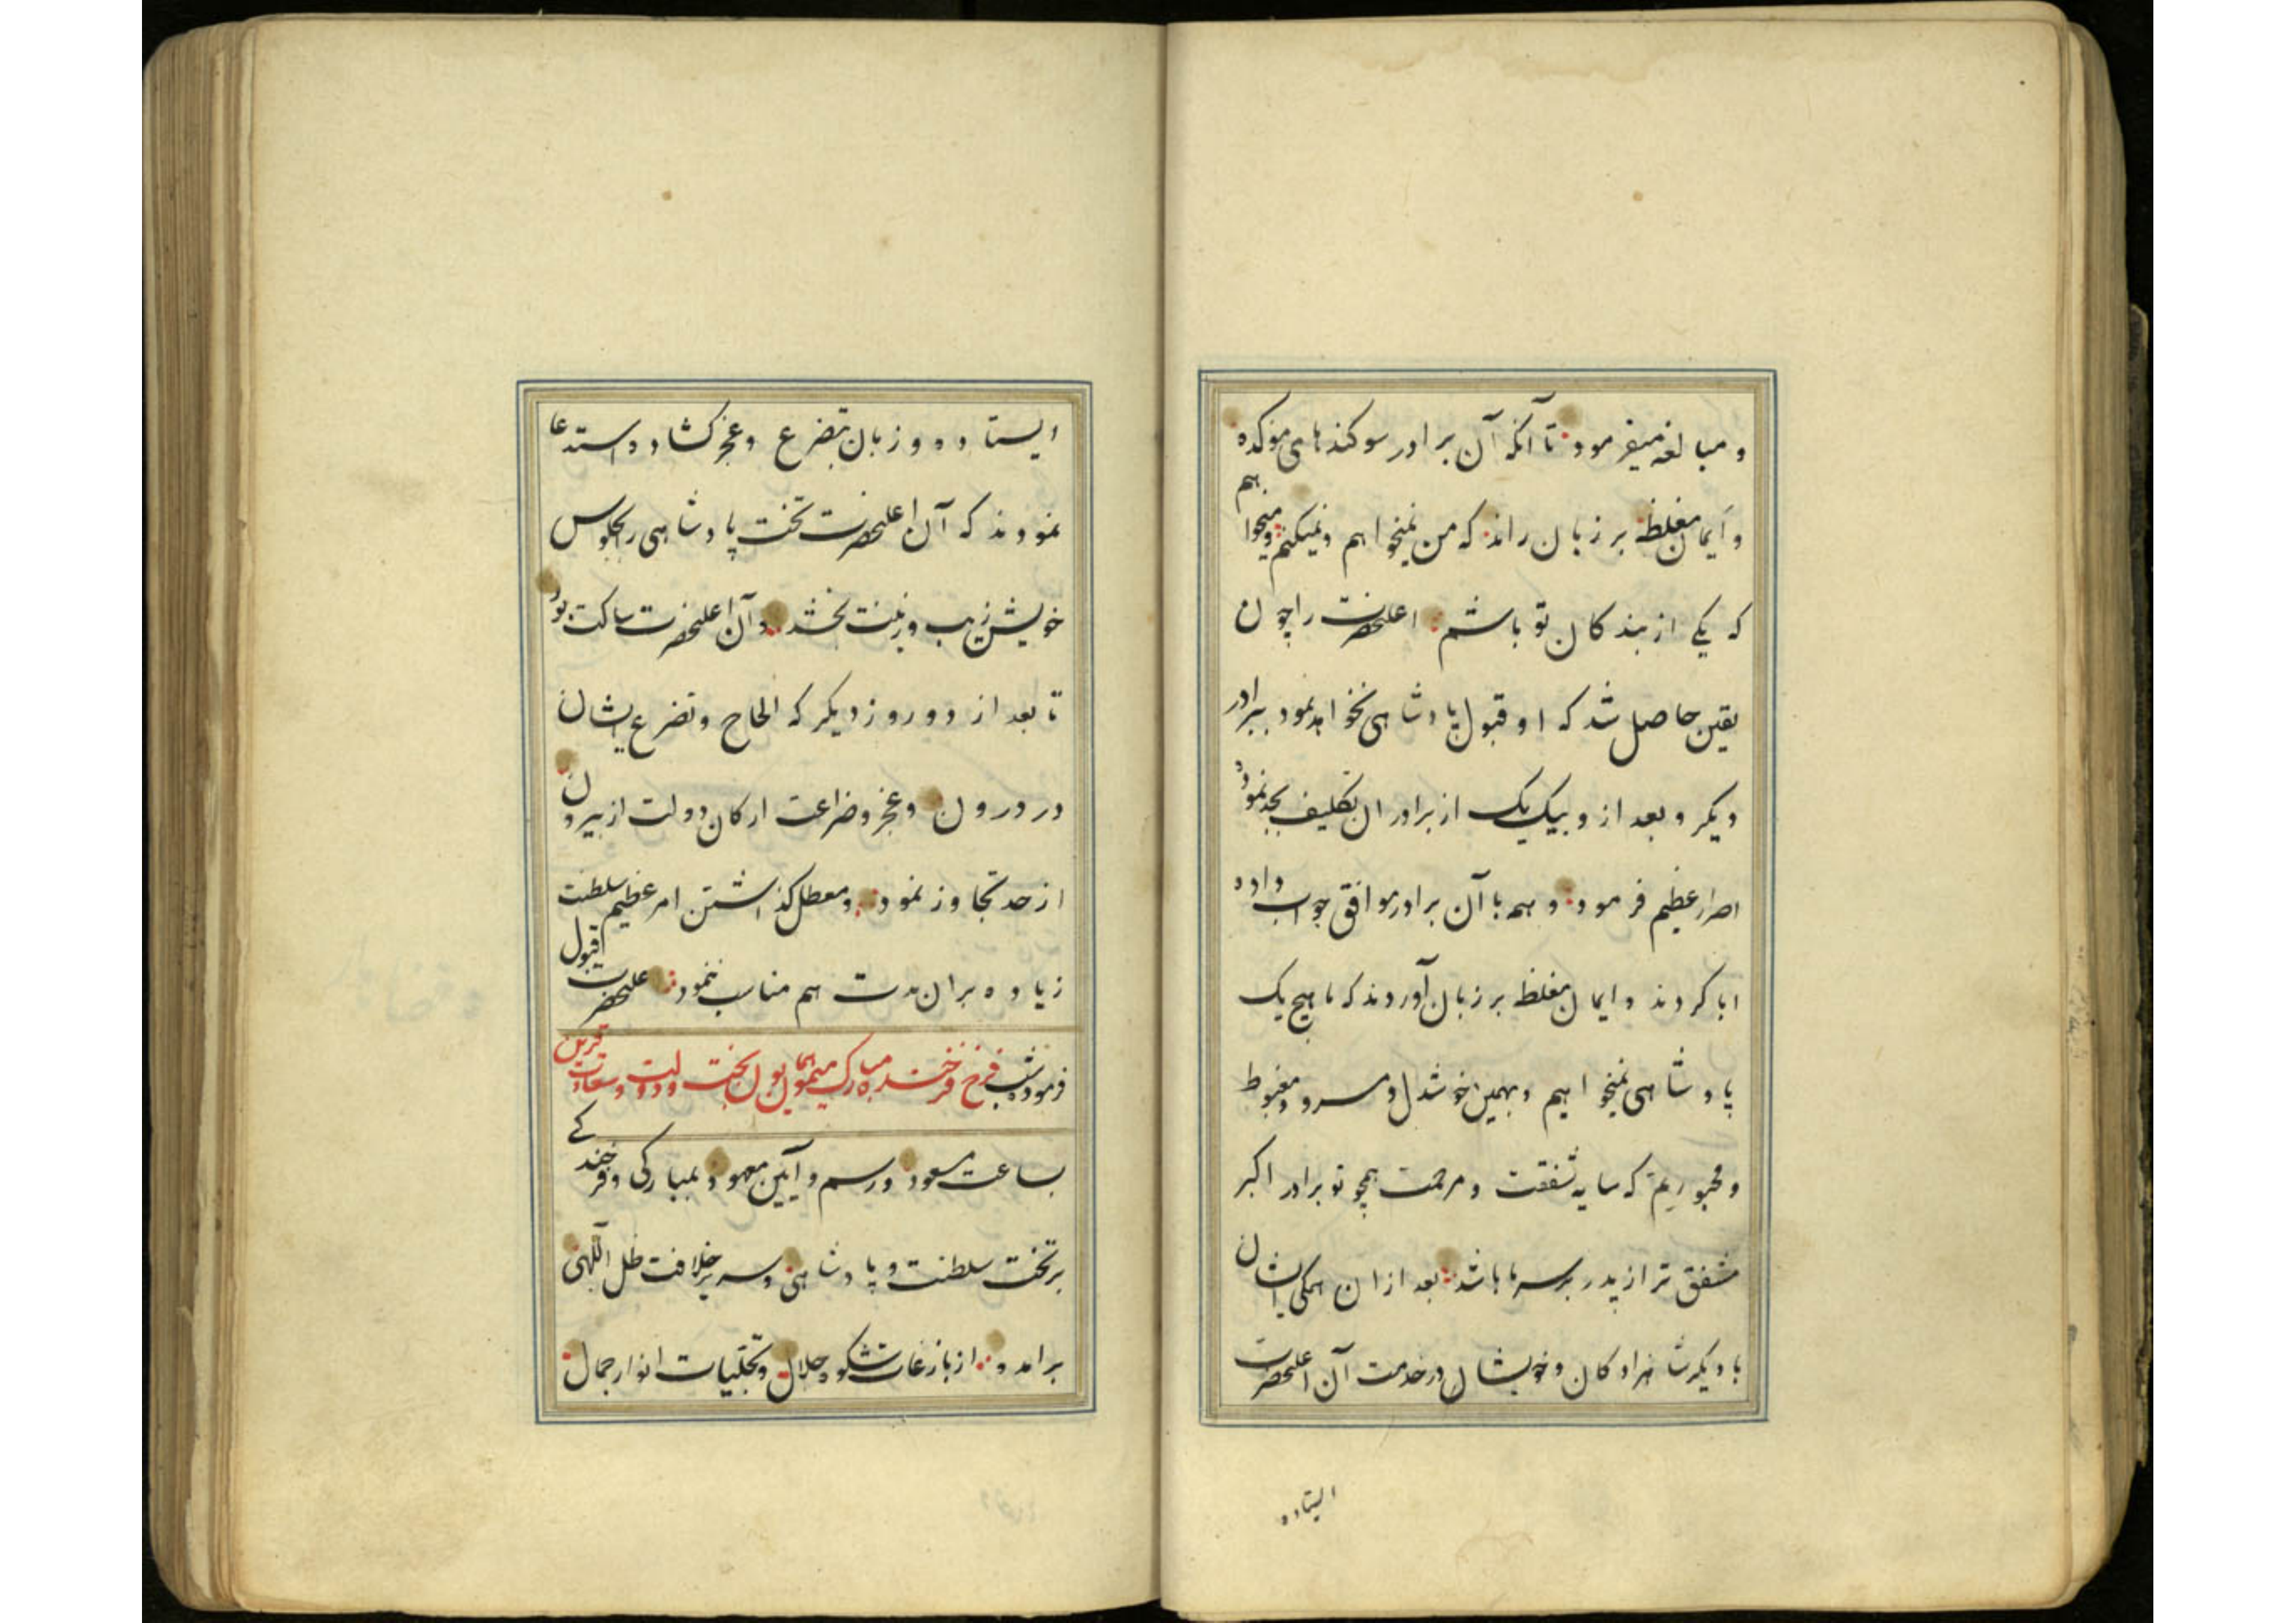 و مبالغه میفرمود تا آنکه آن برادر سوکندهای موکده
و اَیمان مغلظ بر زبان راند که من نمیخواهم و نمیکنم و میخواهم
که یکی از بندکان تو باشم اعلیحضرت را چون
یقین حاصل شد که او قبول پادشاهی نخواهد نمود ببرادر
دیکر و بعد از و بیک یک از برادران تکلیف بجد نمود و
اصرار عظیم فرمود و همه با آن برادر موافق جواب داده
ابا کردند و ایمان مغلظ بر زبان آوردند که ما هیچ یک
پادشاهی نمیخواهیم و بهمین خوشدل و مسرور و مغبوط
و مجبوریم که سایه شفقت و مرحمت همچو تو برادر اکبر
مشفق تر از پدر بر سر ما باشد بعد ازان همکی ایشان
با دیکر شاهزادکان و خویشان در خدمت آن اعلیحضرت
ایستاده
ایستاده و زبان بتضرع و عجز کشاد و استدعا
نمودند که آن اعلیحضرت تخت پادشاهی را بجلوس
خویش زیب و زینت بخشد و آن اعلیحضرت ساکت بود
تا بعد از دو روز دیکر که الحاح و تضرع ایشان
در درون و عجز و ضراعت ارکان دولت از بیرون
از حد تجاوز نمود و معطل کذاشتن امر عظیم سلطنت
زیاده بران مدت هم مناسب ننمود اعلیحضرت قبول
فرموده شب فرخ فرخنده مبارک میمون همایون بخت و دولت و سعادت قرین
بساعت مسعود و رسم و آیین معهود بمبارکی و فرخندکی
بر تخت سلطنت و پادشاهی و سریر خلافت ظل آللهی
برآمد و از بازغات شکوه جلال و تجلّیات انوار جمال